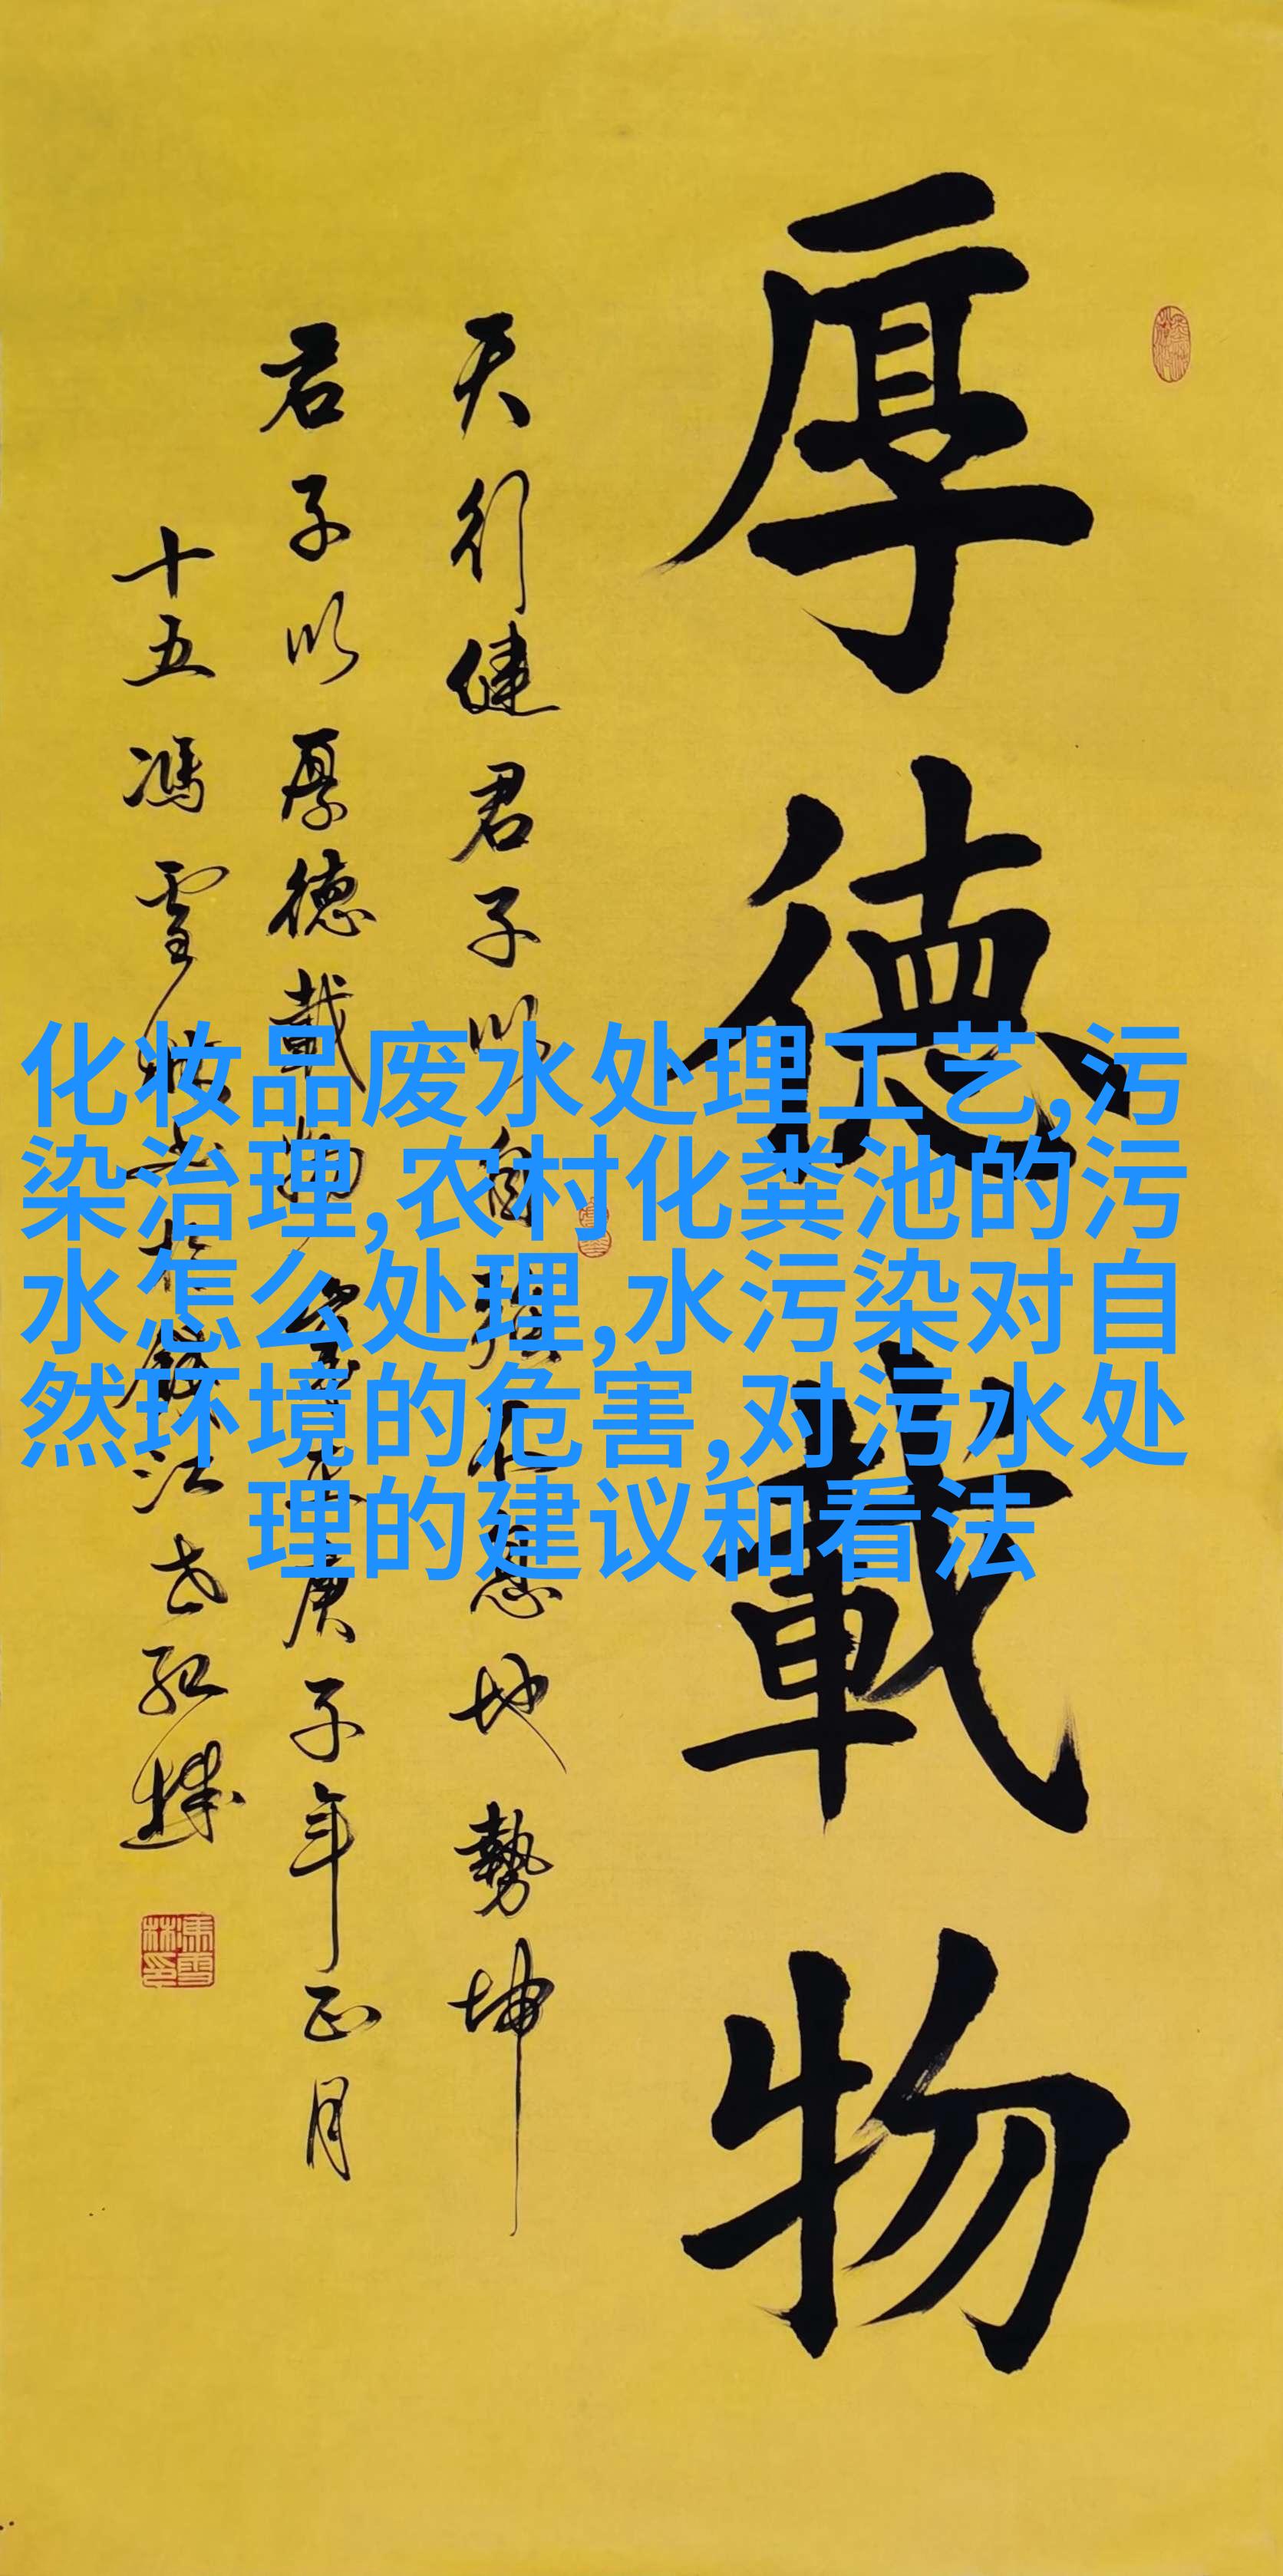 厚德載物
天行健君子以自強不息地勢坤
君子以厚德載物 庚子年正月
十五馮雪林書於鏡江古孤樓
化妆品废水处理工艺,污
染治理,农村化粪池的污
水怎么处理,水污染对自
然环境的危害,对污水处
理的建议和看法
馮雪林印